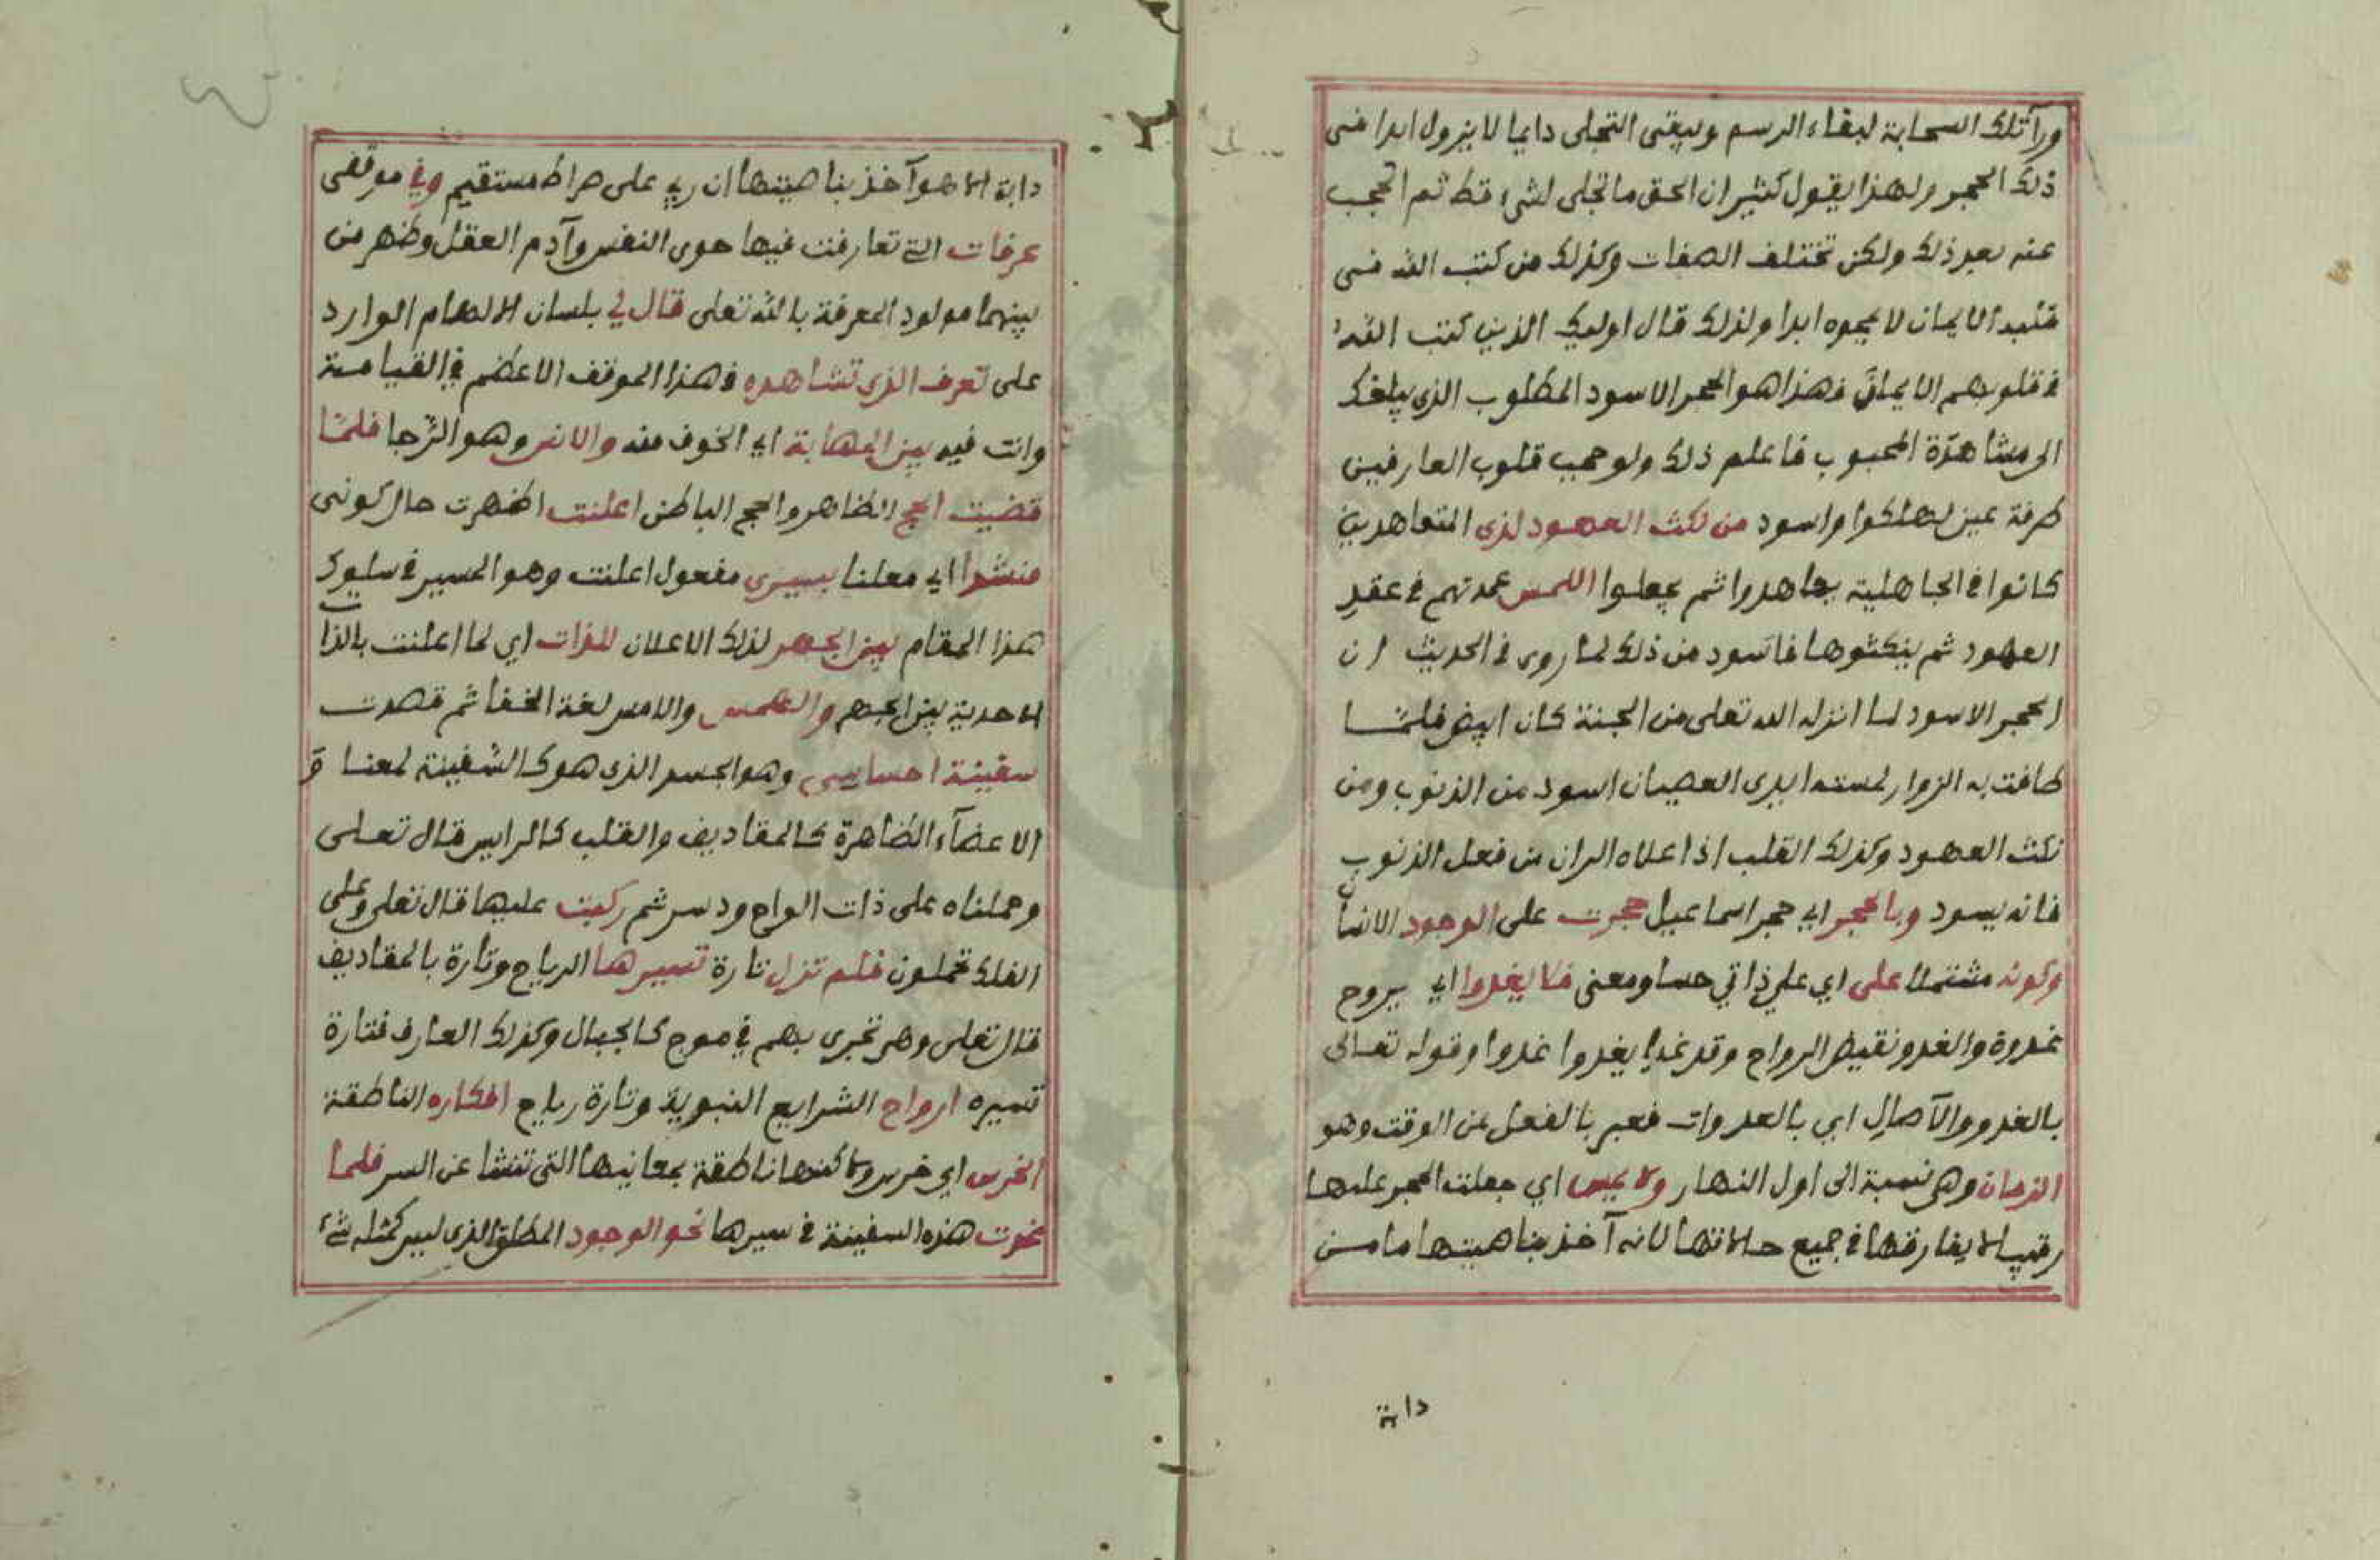 ورآ تلك السحابة لبقاء الرسم ويبقى التجلى دايما لا يزول ابدا فى
ذلك الحجر ولهذا يقول كثير ان الحق ما تجلى لشىء قط ثم احتجب
عنه بعد ذلك ولكن تختلف الصفات وكذلك من كتب الله فى
قلبه الايمان لا يمحوه ابدا ولذلك قال اوليك الذين كتب الله
فى قلوبهم الايمان فهذا هو الحجر الاسود المطلوب الذى يبلغك
الى مشاهدة المحبوب فاعلم ذلك ولو حجب قلوب العارفين
طرفة عين لهلكوا واسود من نكث العهود لذى المتعاهدين
كانوا فى الجاهلية يجاهدوا ثم يجعلوا اللمس عمدتهم فى عقد
العهود ثم ينكثوها فاسود من ذلك لما روى فى الحديث ان
الحجر الاسود لما انزله الله تعلى من الجنة كان ابيض فلما
طافت به الزوار لمسته ايدى العصيان اسود من الذنوب ومن
نكث العهود وكذلك القلب اذا علاه الران من فعل الذنوب
فانه يسود وبالحجر اي حجر اسماعيل حجرت على الوجود الانسان
وكونه مشتملا على اي على ذاتي حسا ومعنى فلا يغدوا اي يروح
غدوة والغدو نقيض الرواح وقد غدا يغدوا غدوا وقوله تعالى
بالغدو والآصال اي بالغدوات فعبر بالفعل عن الوقت وهو
الزمان وهى نسبة الى اول النهار ولا يمسى اي جعلت الحجر عليها
رقيبا لا يفارقها فى جميع حالاتها لانه آخذ بناصيتها ما من
دابة
دابة الا هو آخذ بناصيتها ان ربي على صراط مستقيم وفي موقفى
عرفات التى تعارفت فيها حوى النفس وآدم العقل وظهر من
بينهما مولود المعرفة بالله تعلى قال لي بلسان الالهام الوارد
على تعرف الذى تشاهده فهذا الموقف الاعظم في القيامة
وانت فيه بين المهابة اي الخوف منه والانس وهو الرجا فلما
قضيت الحج الظاهر والحج الباطن اعلنت اظهرت حال كونى
منشدا اي معلنا بسيرى مفعول اعلنت وهو المسير فى سلوك
هذا المقام بين الجهر لذلك الاعلان للذات اي لما اعلنت بالذات
الاحدية بين الجهر والهمس والامس لغة الخفا ثم قصدت
سفينة احساسى وهو الجسم الذى هو كالسفينة لمعناه و
الاعضآء الظاهرة كالمقاديف والقلب كالرايس قال تعلى
وحملناه على ذات الواح ودسر ثم ركبت عليها قال تعلى وعلى
الفلك تحملون فلم تزل تارة تسيرها الرياح وتارة بالمقاديف
قال تعلى وهى تجرى بهم في موج كالجبال وكذلك العارف فتارة
تسيره ارواح الشرايع النبوية وتارة رياح افكاره الناطقة
الخرس اي خرس ولاكنها ناطقة بمعانيها التى تنشا عن السر فلما
نحوت هذه السفينة فى سيرها نحو الوجود المطلق الذى ليس كمثله شىء